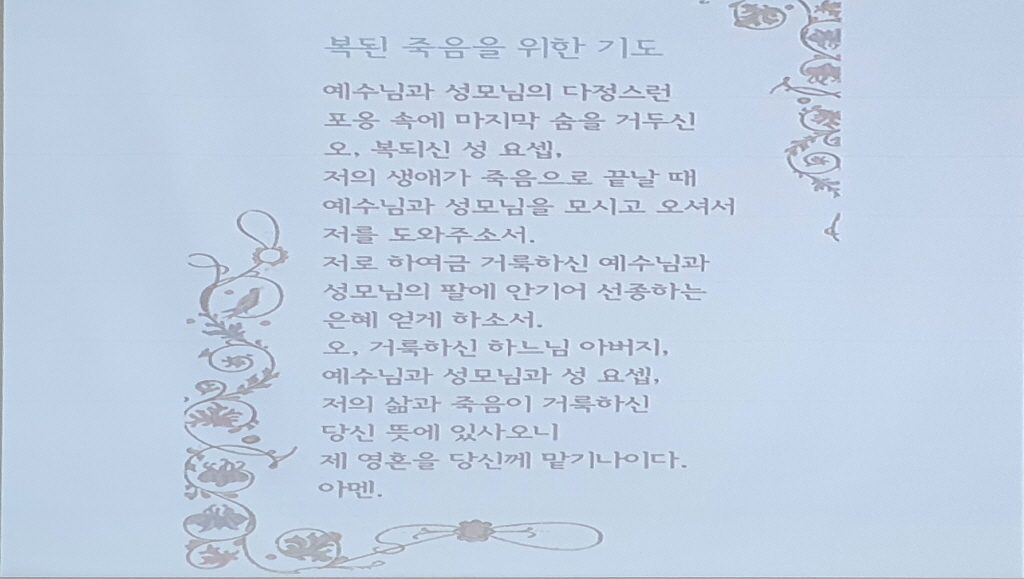 복된 죽음을 위한 기도
예수님과 성모님의 다정스런
포옹 속에 마지막 숨을 거두신
오, 복되신 성 요셉,
저의 생애가 죽음으로 끝날 때
예수님과 성모님을 모시고 오셔서
저를 도와주소서.
저로 하여금 거룩하신 예수님과
성모님의 팔에 안기어 선종하는
은혜 얻게 하소서.
오, 거룩하신 하느님 아버지,
예수님과 성모님과 성 요셉,
저의 삶과 죽음이 거룩하신
당신 뜻에 있사오니
제 영혼을 당신께 맡기나이다.
아멘.